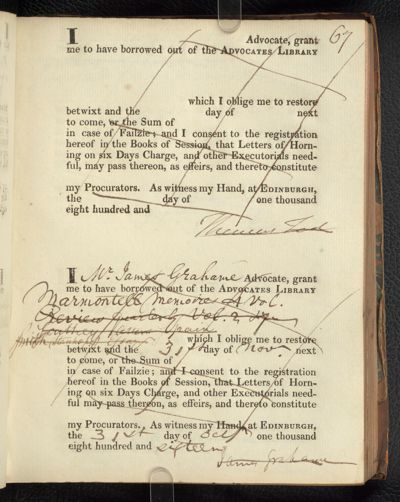 67
I Advocate, grant
me to have borrowed out of the ADVOCATES LIBRARY
which I oblige me to restore
betwixt and the day of next
to come, or the Sum of
in case of Failzie; and I consent to the registration
hereof in the Books of Session, that Letters of Horn-
ing on six Days Charge, and other Executorials need-
ful, may pass thereon, as effeirs, and thereto constitute
my Procurators. As witness my Hand, at EDINBURGH,
the day of one thousand
eight hundred and
I Mr. James Grahame Advocate, grant
me to have borrowed out of the ADVOCATES LIBRARY
Marmontell Memoires Vol.
Review Quarterly Vol. 2
Southey
which I oblige me to restore
betwixt and the 31st day of Novr. next
to come, or the Sum of
in case of Failzie; and I consent to the registration
hereof in the Books of Session, that Letters of Horn-
ing on six Days Charge, and other Executorials need-
ful may pass thereon, as effeirs, and thereto constitute
my Procurators. As witness my Hand, at EDINBURGH,
the 31st day of one thousand
eight hundred and sixteen
James Grahame